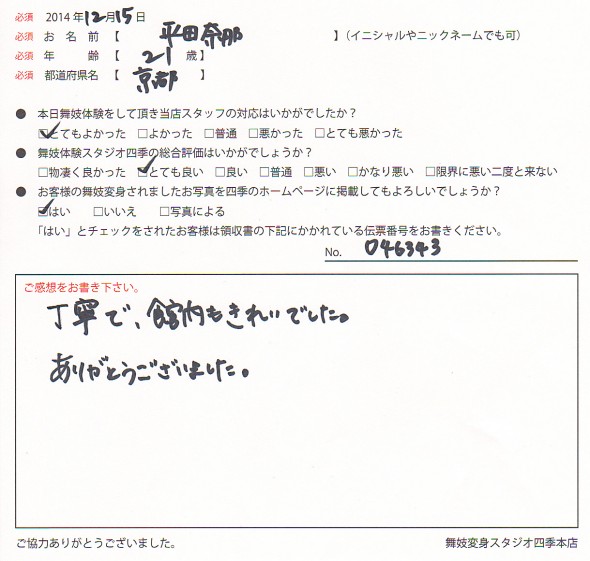 必須 2014年12月15日
必須 お名前【 平田奈那 】(イニシャルやニックネームでも可)
必須 年齢【 21 歳】
必須 都道府県名【 京都 】
● 本日舞妓体験をして頂き当店スタッフの対応はいかがでしたか？
☑とてもよかった □よかった □普通 □悪かった □とても悪かった
● 舞妓体験スタジオ四季の総合評価はいかがでしょうか？
□物凄く良かった ☑とても良い □良い □普通 □悪い □かなり悪い □限界に悪い二度と来ない
● お客様の舞妓変身されましたお写真を四季のホームページに掲載してもよろしいでしょうか？
☑はい □いいえ □写真による
「はい」とチェックをされたお客様は領収書の下記にかかれている伝票番号をお書きください。
No. 046343
ご感想をお書き下さい。
丁寧で、館内もきれいでした。
ありがとうございました。
ご協力ありがとうございました。 舞妓変身スタジオ四季本店